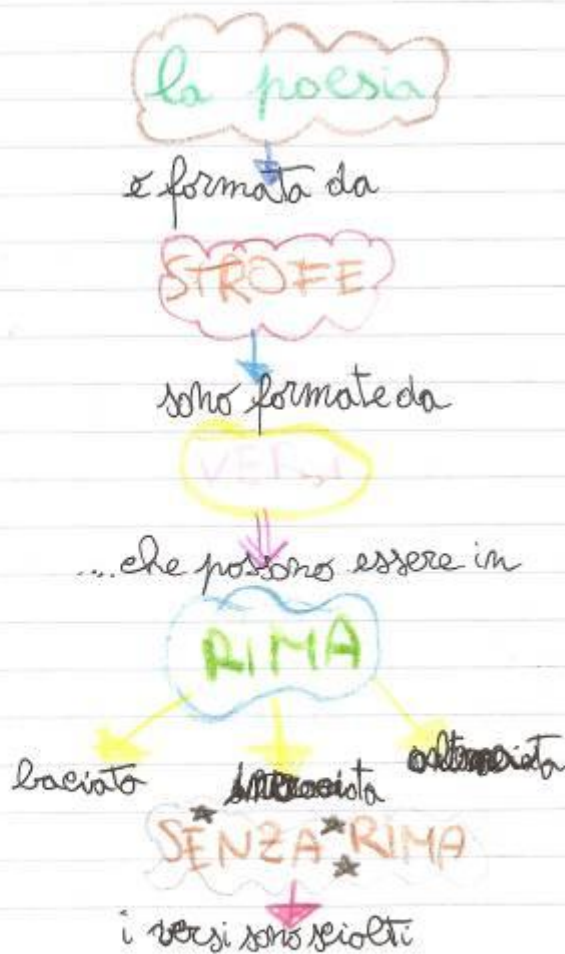 la poesia
è formata da
STROFE
sono formate da
VERSI
... che possono essere in
RIMA
baciata
SENZA RIMA
i versi sono sciolti